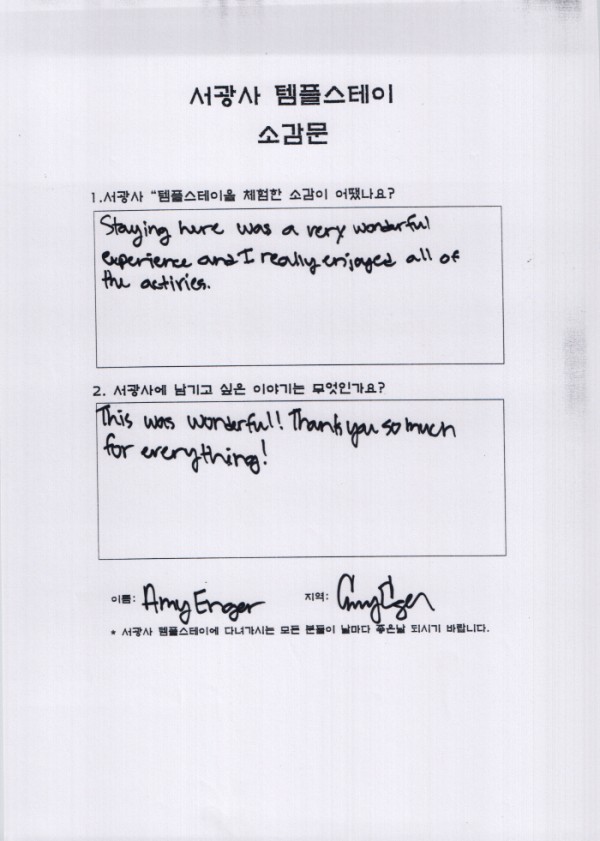 서광사 템플스테이
소감문
1.서광사 "템플스테이을 체험한 소감이 어땠나요?
Staying here was a very wonderful
experience and I really enjoyed all of
the activies.
2. 서광사에 남기고 싶은 이야기는 무엇인가요?
This was wonderful! Thank you so much
for everything!
이름: Amy Enger 지역:
* 서광사 템플스테이에 다녀가시는 모든 분들이 날마다 좋은날 되시기 바랍니다.